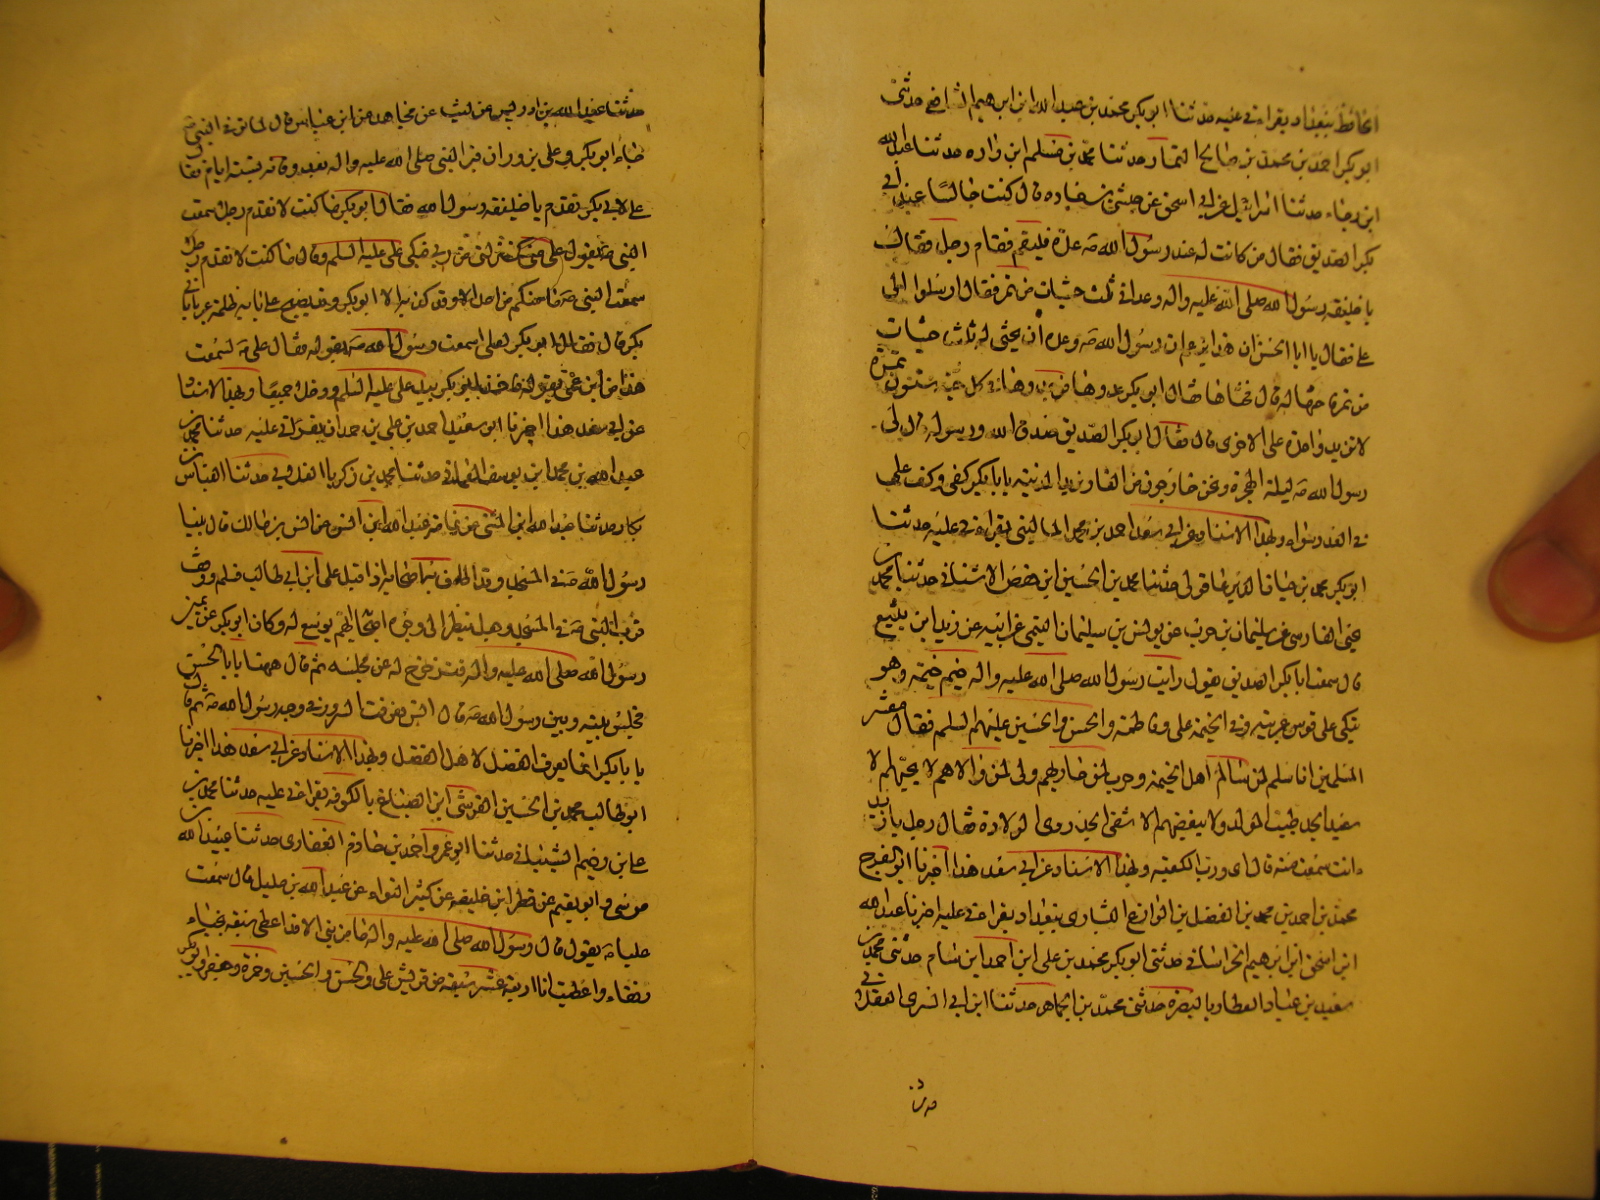 الحافظ ببغداد بقراءتي عليه حدثنا ابوبكر محمد بن عبدالله ابن ابرهيم الشافعي حدثني
ابوبكر احمد بن محمد بن صالح التمار حدثنا محمد بن مسلم ابن واره حدثنا عبدالله
ابن رجاء حدثنا اسرائيل عن ابي اسحق عن حبشي بن جناده قال كنت جالسًا عند ابي
بكر الصديق فقال من كانت له عند رسول الله صه عدة فليقم فقام رجل فقال
يا خليفه رسول الله صلى الله عليه واله وعدني ثلث حثيات من تمر فقال ارسلوا الى
علي فقال يا ابا الحسن ان هذا يزعم ان رسول الله صه وعده ان يحثى له ثلاث حثيات
من تمر فاحثها له قال فحثاها فقال ابوبكر عدوها فوجدوها في كل حثيه ستون تمرة
لا تزيد واحدة على الاخرى قال فقال ابوبكر الصديق صدق الله ورسوله قال لي
رسول الله صه ليلة الهجرة ونحن خارجون من الغار نريد المدينه يا بابكر كفي وكف علي
في العدد سواء وبهذا الاسناد عن ابي سعد احمد بن محمد الماليني بقراءتي عليه حدثنا
ابوبكر محمد بن حدثنا محمد بن الحسين ابن حفص الاشناني حدثنا محمد بن
يحيى الفارسي عن سليمان بن حرب عن يونس بن سليمان التيمي عن ابيه عن زيد ابن يثيع
قال سمعت ابابكر الصديق يقول رايت رسول الله صلى الله عليه واله خيم خيمه وهو
متكي على قوس عربيه وفي الخيمه علي وفاطمه والحسن والحسين عليهم السلم فقال معشر
المسلمين انا سلم لمن سالم اهل الخيمه وحرب لمن حاربهم وولي لمن والاهم لا يحبهم الا
سعيد الجد طيب المولد ولا يبغضهم الا شقي الجد ردى الولادة فقال رجل يا زيد
ءانت سمعت منه قال اى ورب الكعبه وبهذا الاسناد عن ابي سعد هذا اخبرنا ابو الفرج
محمد بن احمد بن محمد بن الفضل بن ببغداد بقراءتي عليه اخبرنا عبدالله
ابن اسحق ابن ابرهيم الخراساني حدثني ابوبكر محمد بن علي ابن احمد ابن بسام حدثني محمد بن
سعيد بن عباد العطار بالبصره حدثني محمد بن حدثنا ابن ابي السرى العسقلاني
حدثنا
حدثنا عبدالله بن ادريس عن ليث عن مجاهد عن ابن عباس قال لما توفي النبي صه
جاء ابوبكر وعلى يزوران قبر النبي صلى الله عليه واله بعد وفاته بستة ايام فقال
علي لابي بكر تقدم يا خليفه رسول الله فقال ابوبكر ما كنت لاتقدم رجلا سمعت
النبي صه يقول علي مني كمنزلتي من ربي فبكى علي عليه السلم وقال ما كنت لاتقدم رجلا
سمعت النبي صه يقول ما منكم من احد الا وقد كذبني الا ابوبكر
بكر قال فقال ابوبكر لعلي اسمعت رسول الله صه يقوله فقال علي صه لسمعت
هذا من ابن عمي يقوله فاخذ ابوبكر بيد علي عليه السلم ودخلا جميعًا وبهذا الاسناد
عن ابي سعد هذا اخبرنا ابو سعيد احمد بن علي بن حمدان بقراءتي عليه حدثنا محمد بن
عبدالله بن محمد ابن يوسف العماني حدثنا محمد بن زكريا الغلابي حدثنا العباس بن
بكار حدثنا عبدالله ابن المثنى عن ثمامه بن عبدالله ابن انس عن انس بن مالك قال بينا
رسول الله صه في المسجد وقد اطاف به اصحابه اذ اقبل علي ابن ابي طالب فسلم ووقف
فرد النبي صه في المسجد وهل ينظر الى وجوه اصحابه ايهم يوسع له وكان ابوبكر عن يمين
رسول الله صلى الله عليه واله فتزحزح له عن مجلسه ثم قال ههنا يا ابا الحسن
فجلس بينه وبين رسول الله صه قال انس فعرفت السرور في وجه رسول الله صه ثم قال
يا بابكر انما يعرف الفضل لاهل الفضل وبهذا الاسناد عن ابي سعد هذا اخبرنا
ابو طالب محمد بن الحسين القرشي ابن الصباغ بالكوفه بقراءتي عليه حدثنا محمد بن
علي بن رحيم الشيباني حدثنا ابو عمرو احمد بن حازم الغفاري حدثنا عبيدالله بن
موسى وابو نعيم عن فطر ابن خليفه عن كثير النواء عن عبدالله بن مليل قال سمعت
عليا صه يقول قال رسول الله صلى الله عليه واله ما من نبي الا قد اعطي سبعه نجباء
رفقاء واعطيت انا اربعه عشر سبعه من قريش علي والحسن والحسين وحمزه وجعفر وابوبكر